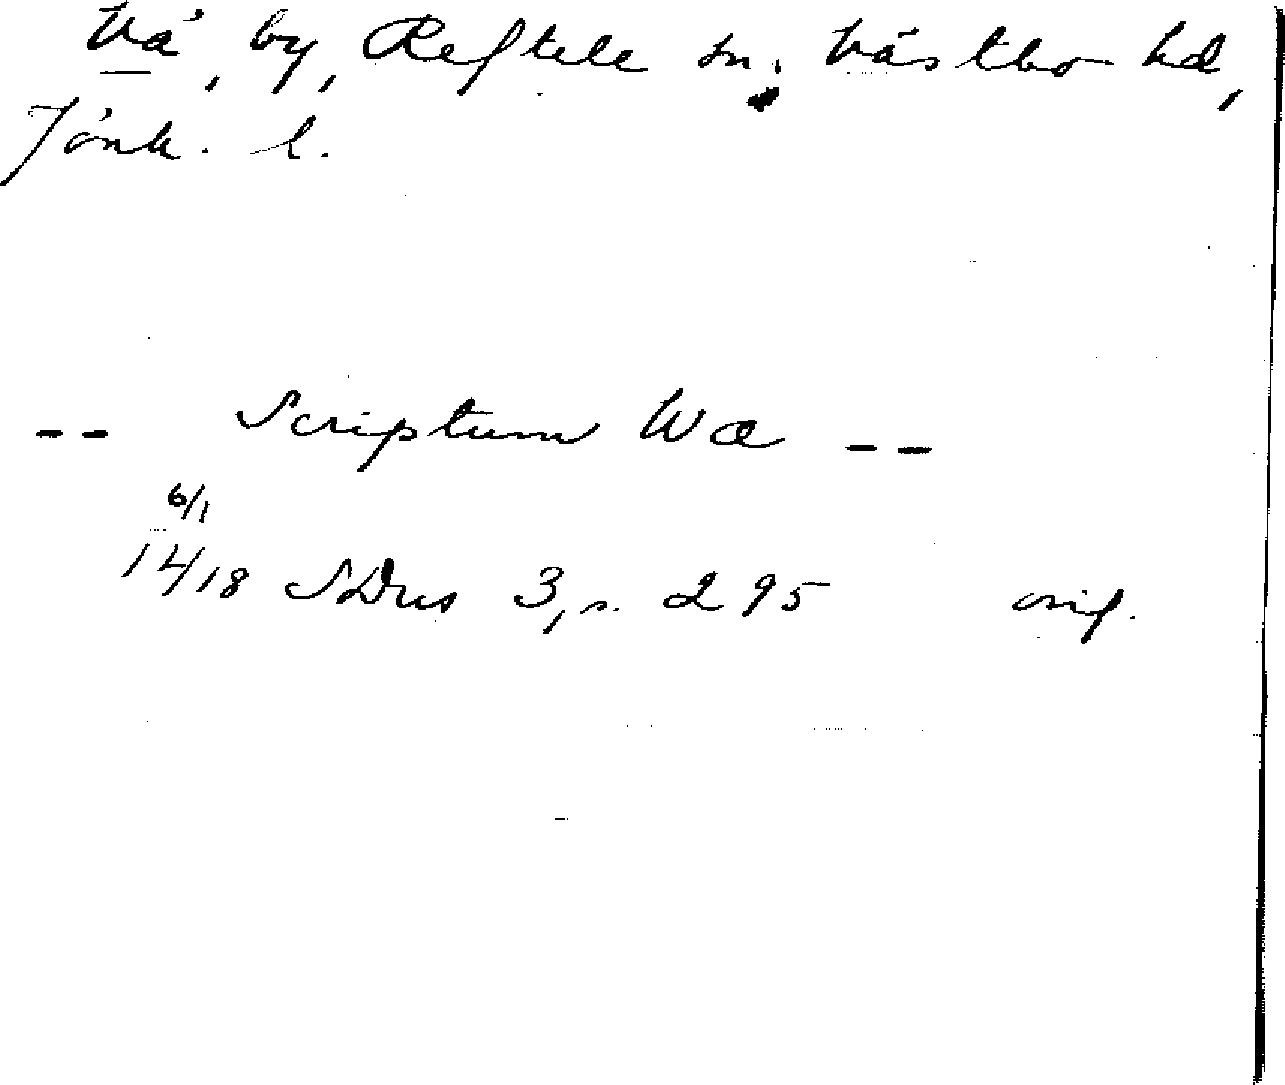 Vä, by, Reftele sn, Västbo hd,
Jönk. l.
-- Scriptum Wæ --
6/1
14/18 SDns 3, s. 295 orig.